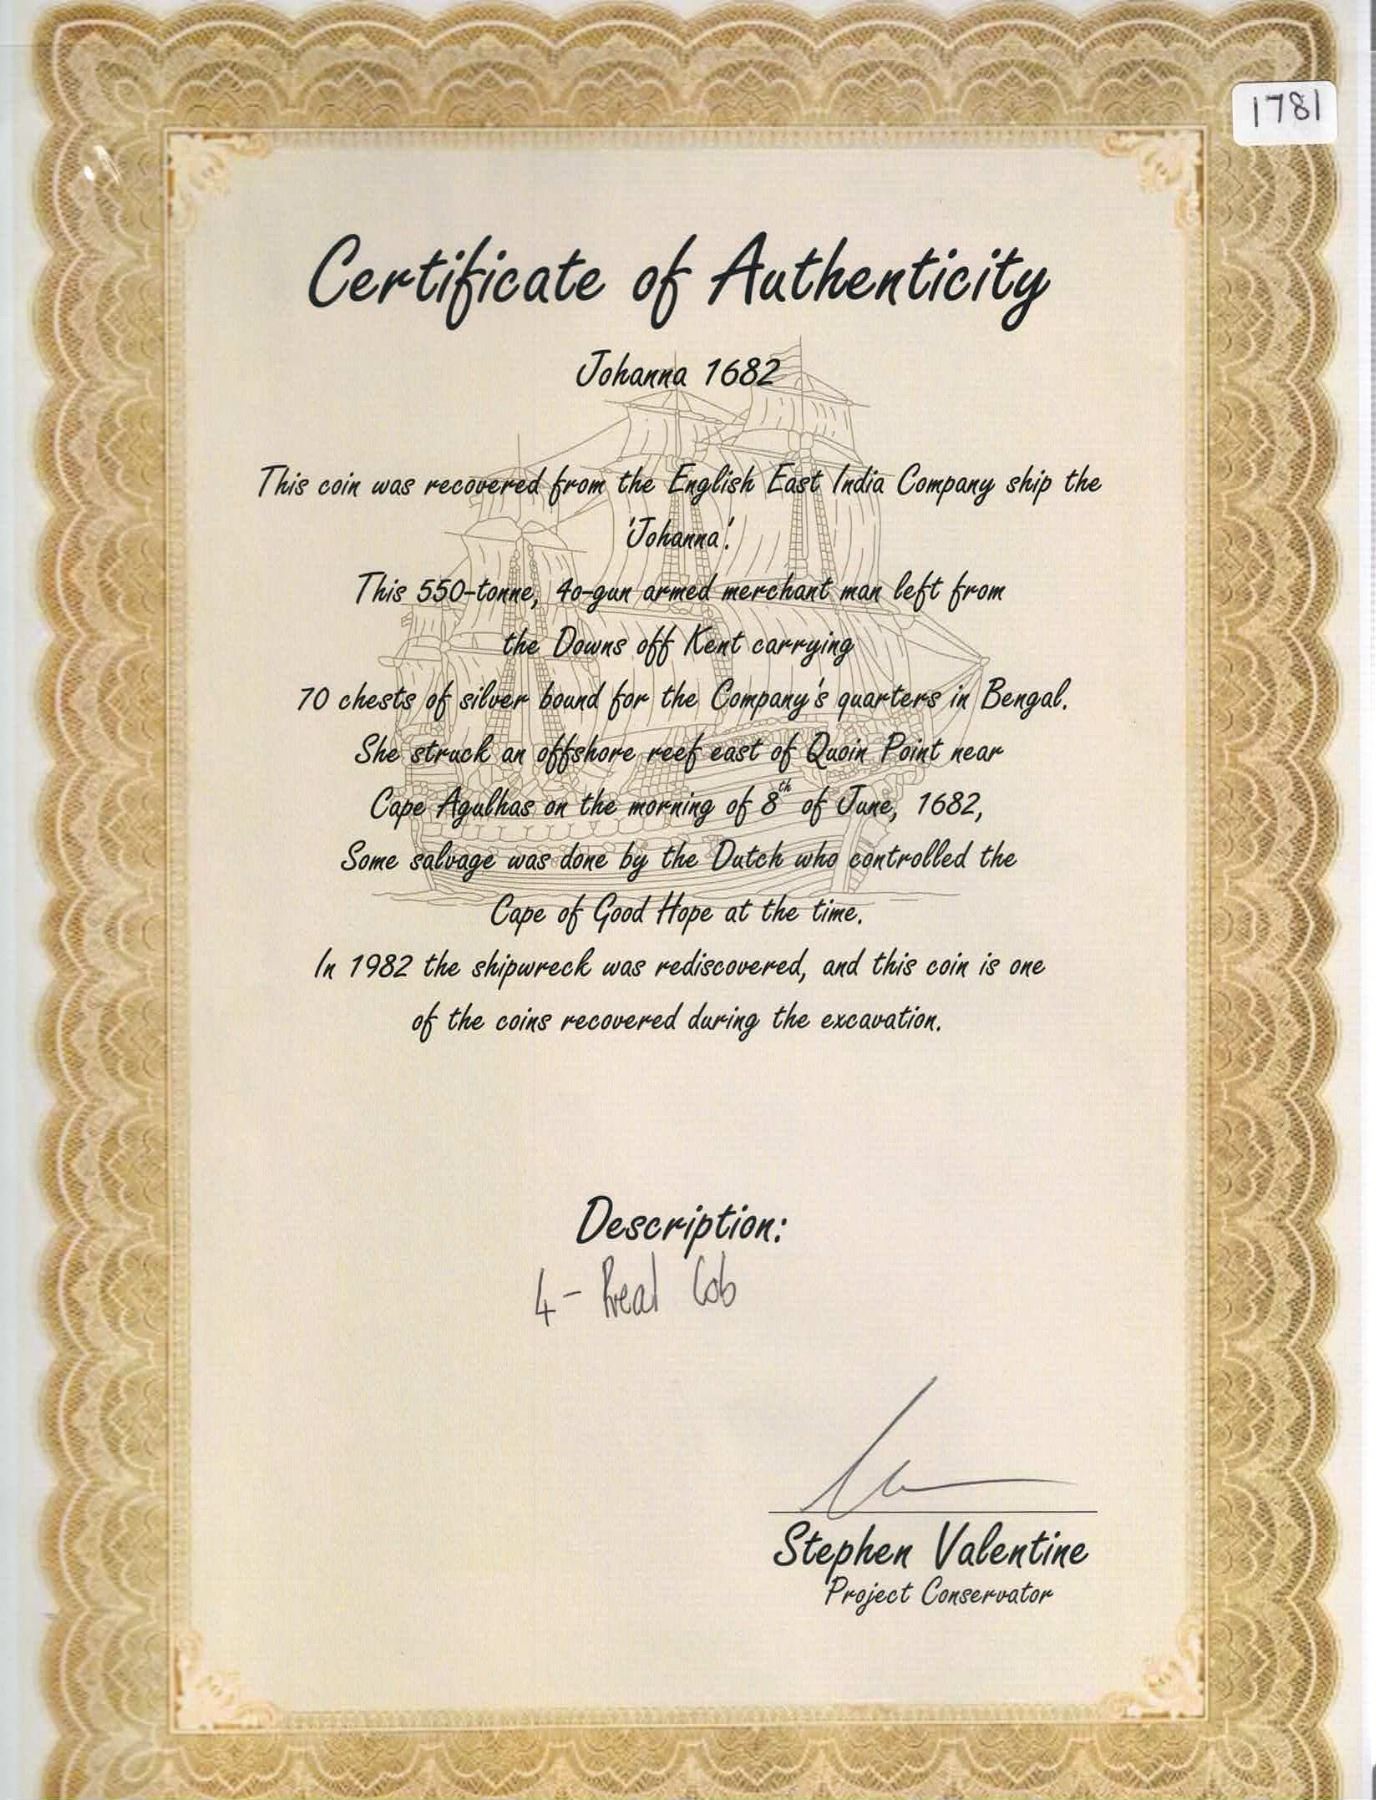 1781
Certificate of Authenticity
Johanna 1682
This coin was recovered from the English East India Company ship the
'Johanna'.
This 550-tonne, 40-gun armed merchant man left from
the Downs off Kent carrying
70 chests of silver bound for the Company's quarters in Bengal.
She struck an offshore reef east of Quoin Point near
Cape Agulhas on the morning of 8th of June, 1682,
Some salvage was done by the Dutch who controlled the
Cape of Good Hope at the time.
In 1982 the shipwreck was rediscovered, and this coin is one
of the coins recovered during the excavation.
Description:
4 - Real Cob
Stephen Valentine
Project Conservator